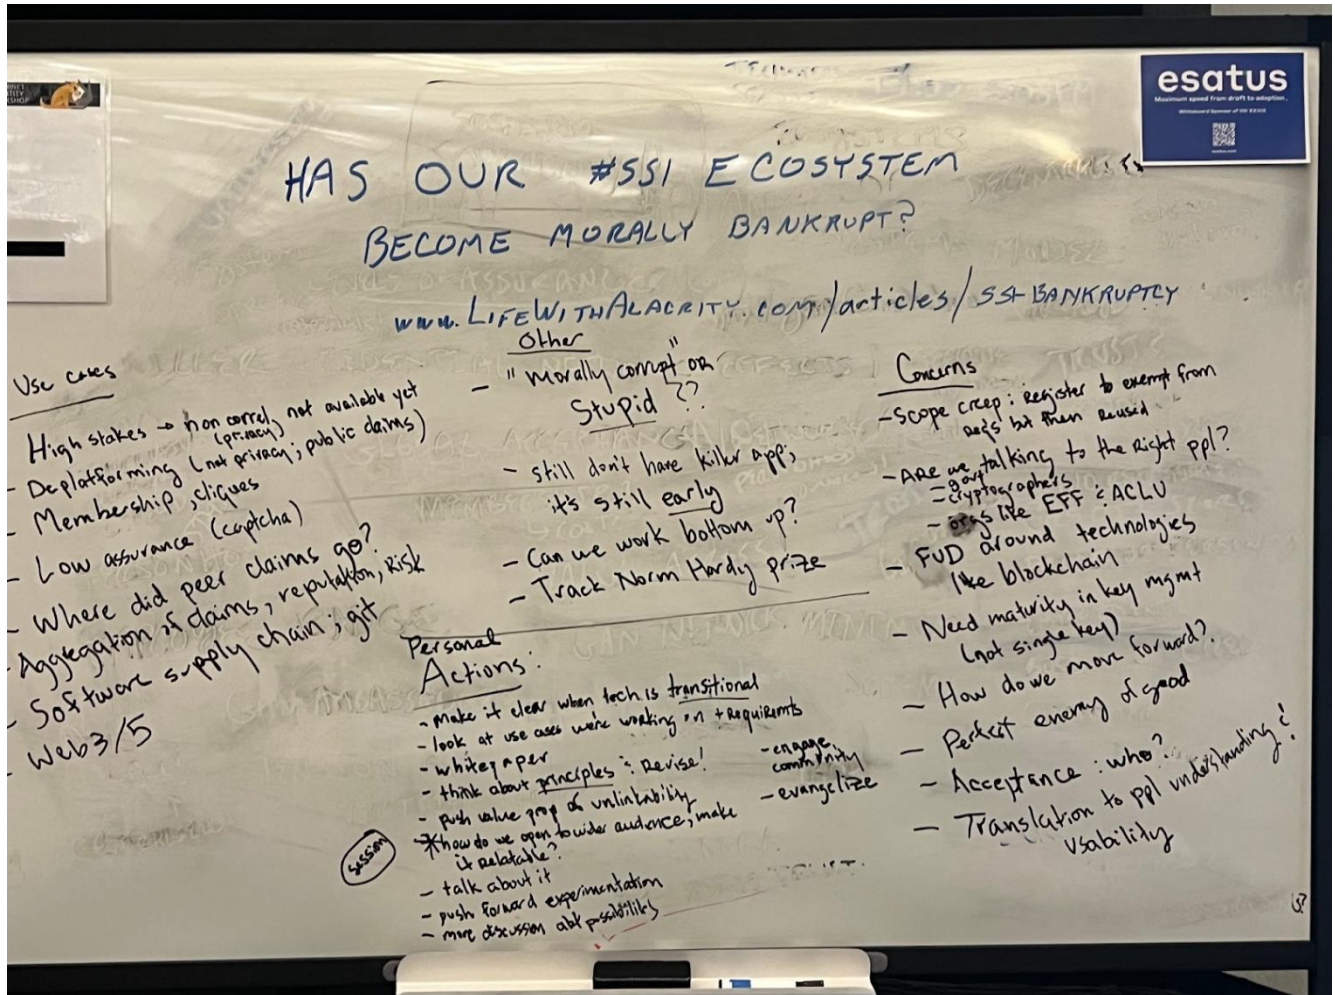 esatus
Maximum speed from draft to adoption.
HAS OUR #SSI ECOSYSTEM
BECOME MORALLY BANKRUPT?
www.LIFEWITHALACRITY.com/articles/SSI-BANKRUPTCY
Use cases
High stakes → non correl, not available yet
(privacy)
- Deplatforming (not privacy; public claims)
- Membership, cliques
- Low assurance (captcha)
- Where did peer claims go?
- Aggregation of claims, reputation, Risk
- Software supply chain; git
- Web3/5
Other
- "morally corrupt" OR
Stupid ??
- still don't have killer app;
it's still early
- Can we work bottom up?
- Track Norm Hardy prize
Personal
Actions:
- make it clear when tech is transitional
- look at use cases we're working on + Requiremts
- whitepaper
- think about principles; Revise!
- push value prop of unlinkability
* how do we open to wider audience; make
it Relatable?
session
- talk about it
- push forward experimentation
- more discussion abt possibilities
- engage
community
- evangelize
Concerns
- Scope creep: Register to exempt from
Req's but then Reused
- ARe we talking to the Right ppl?
- govt
- cryptographers
- orgs like EFF & ACLU
- FUD around technologies
like blockchain
- Need maturity in key mgmt
(not single key)
- How do we move forward?
- Perfect enemy of good
- Acceptance: who?
- Translation to ppl understanding &
usability